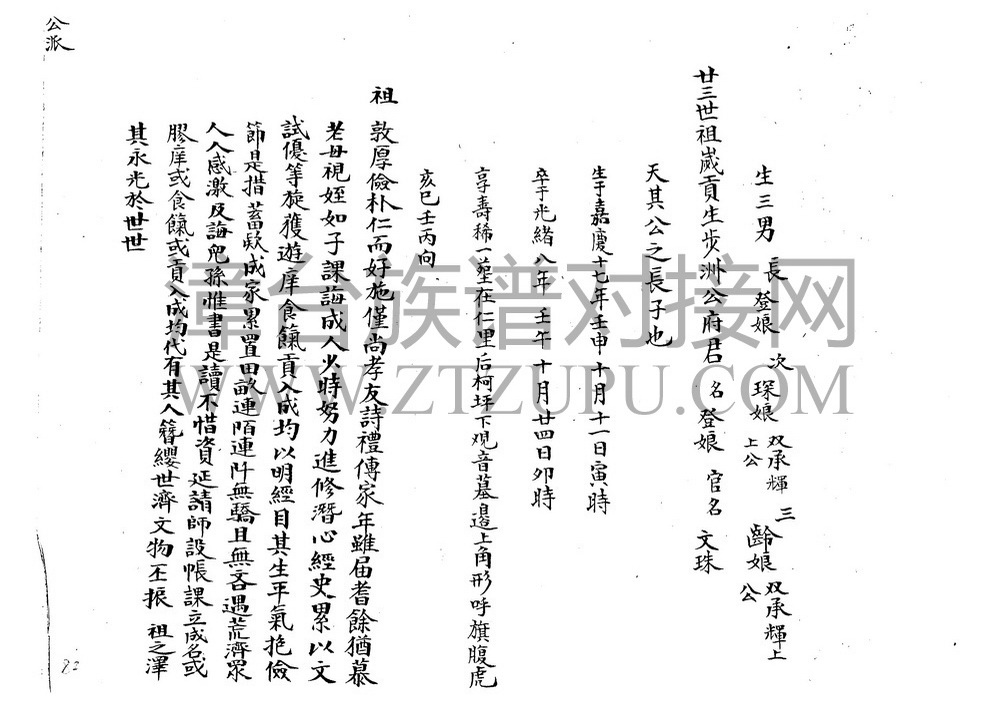 生三男 長登娘 次琛娘双承輝上公 三齡娘双承輝上公
廿三世祖歲貢生步洲公府君 名登娘 官名文珠
天其公之長子也
生于嘉慶十七年壬申十月十一日寅時
卒于光緒八年壬午十月廿四日夘時
享壽稀一塟在仁里后柯坪下观音墓邉上角形呼旗腹虎
亥巳壬丙向
祖 敦厚儉朴仁而好施僅尚孝友詩禮傳家年雖届耆餘猶慕
老母視姪如子課誨成人火時努力進修潛心經史累以文
試優等旋獲遊庠食餼貢入成均以明經目其生平氣抱儉
節是措蓄欵成家累置田畝連陌連阡無驕且無吝遇荒濟眾
人人感激及誨兒孫惟書是讀不惜資延請師設帳課立成名或
膠庠或食餼或貢入成均代有其人簪纓世濟文物丕振 祖之澤
其永光於世世
公派
82
漳台族谱对接网
WWW.ZTZUPU.COM